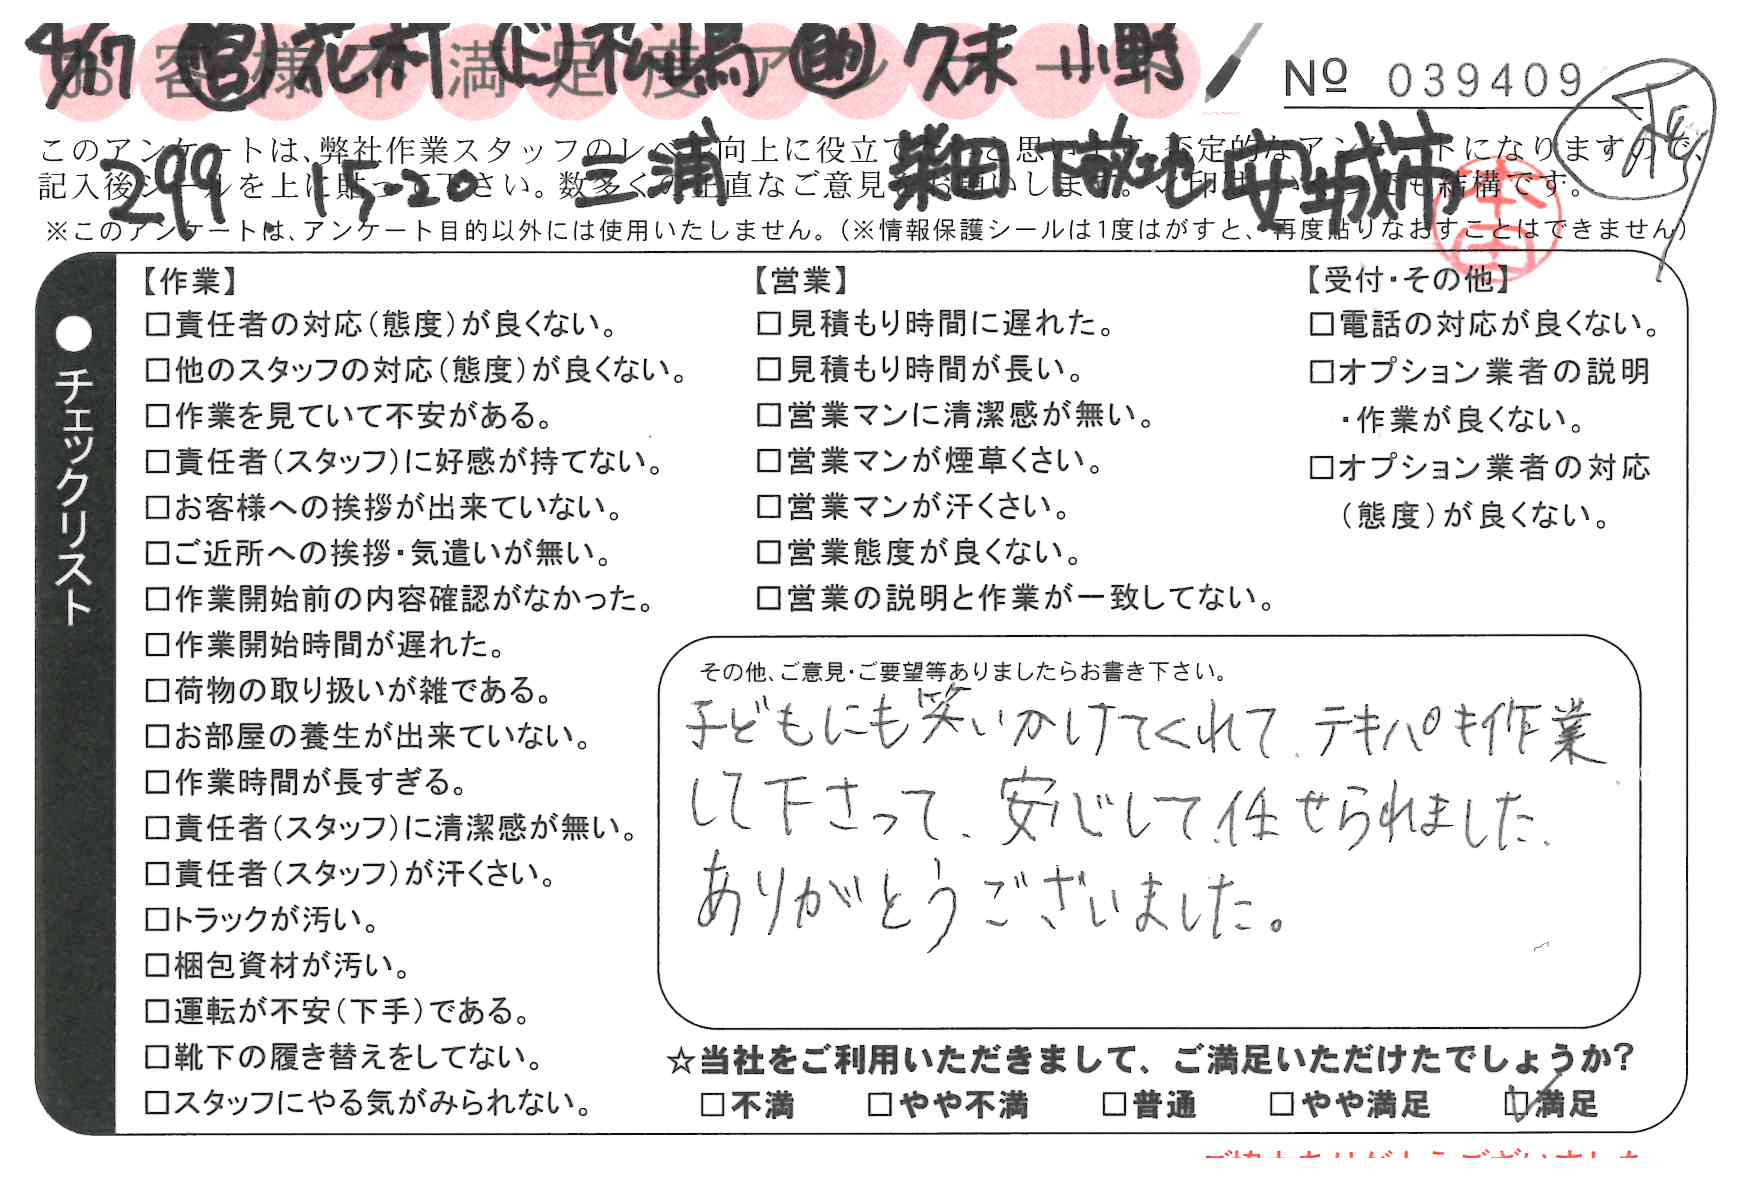 4/17 花村 松嶋 助 久末 小野
お客様不満足度アンケート
No 039409
このアンケートは、弊社作業スタッフのレベル向上に役立て と思います。否定的なアンケートになりますので、
記入後シールを上に貼って下さい。数多くの正直なご意見をお願いします。 でも結構です。
299 15-20 三浦 安城市
※このアンケートは、アンケート目的以外には使用いたしません。(※情報保護シールは1度はがすと、再度貼りなおすことはできません)
●チェックリスト
【作業】
□責任者の対応(態度)が良くない。
□他のスタッフの対応(態度)が良くない。
□作業を見ていて不安がある。
□責任者(スタッフ)に好感が持てない。
□お客様への挨拶が出来ていない。
□ご近所への挨拶・気遣いが無い。
□作業開始前の内容確認がなかった。
□作業開始時間が遅れた。
□荷物の取り扱いが雑である。
□お部屋の養生が出来ていない。
□作業時間が長すぎる。
□責任者(スタッフ)に清潔感が無い。
□責任者(スタッフ)が汗くさい。
□トラックが汚い。
□梱包資材が汚い。
□運転が不安(下手)である。
□靴下の履き替えをしてない。
□スタッフにやる気がみられない。
【営業】
□見積もり時間に遅れた。
□見積もり時間が長い。
□営業マンに清潔感が無い。
□営業マンが煙草くさい。
□営業マンが汗くさい。
□営業態度が良くない。
□営業の説明と作業が一致してない。
【受付・その他】
□電話の対応が良くない。
□オプション業者の説明
・作業が良くない。
□オプション業者の対応
(態度)が良くない。
その他、ご意見・ご要望等ありましたらお書き下さい。
子どもにも笑いかけてくれて、テキパキ作業
して下さって、安心して任せられました、
ありがとうございました。
☆当社をご利用いただきまして、ご満足いただけたでしょうか?
□不満 □やや不満 □普通 □やや満足 ☑満足
ご協力ありがとうございました